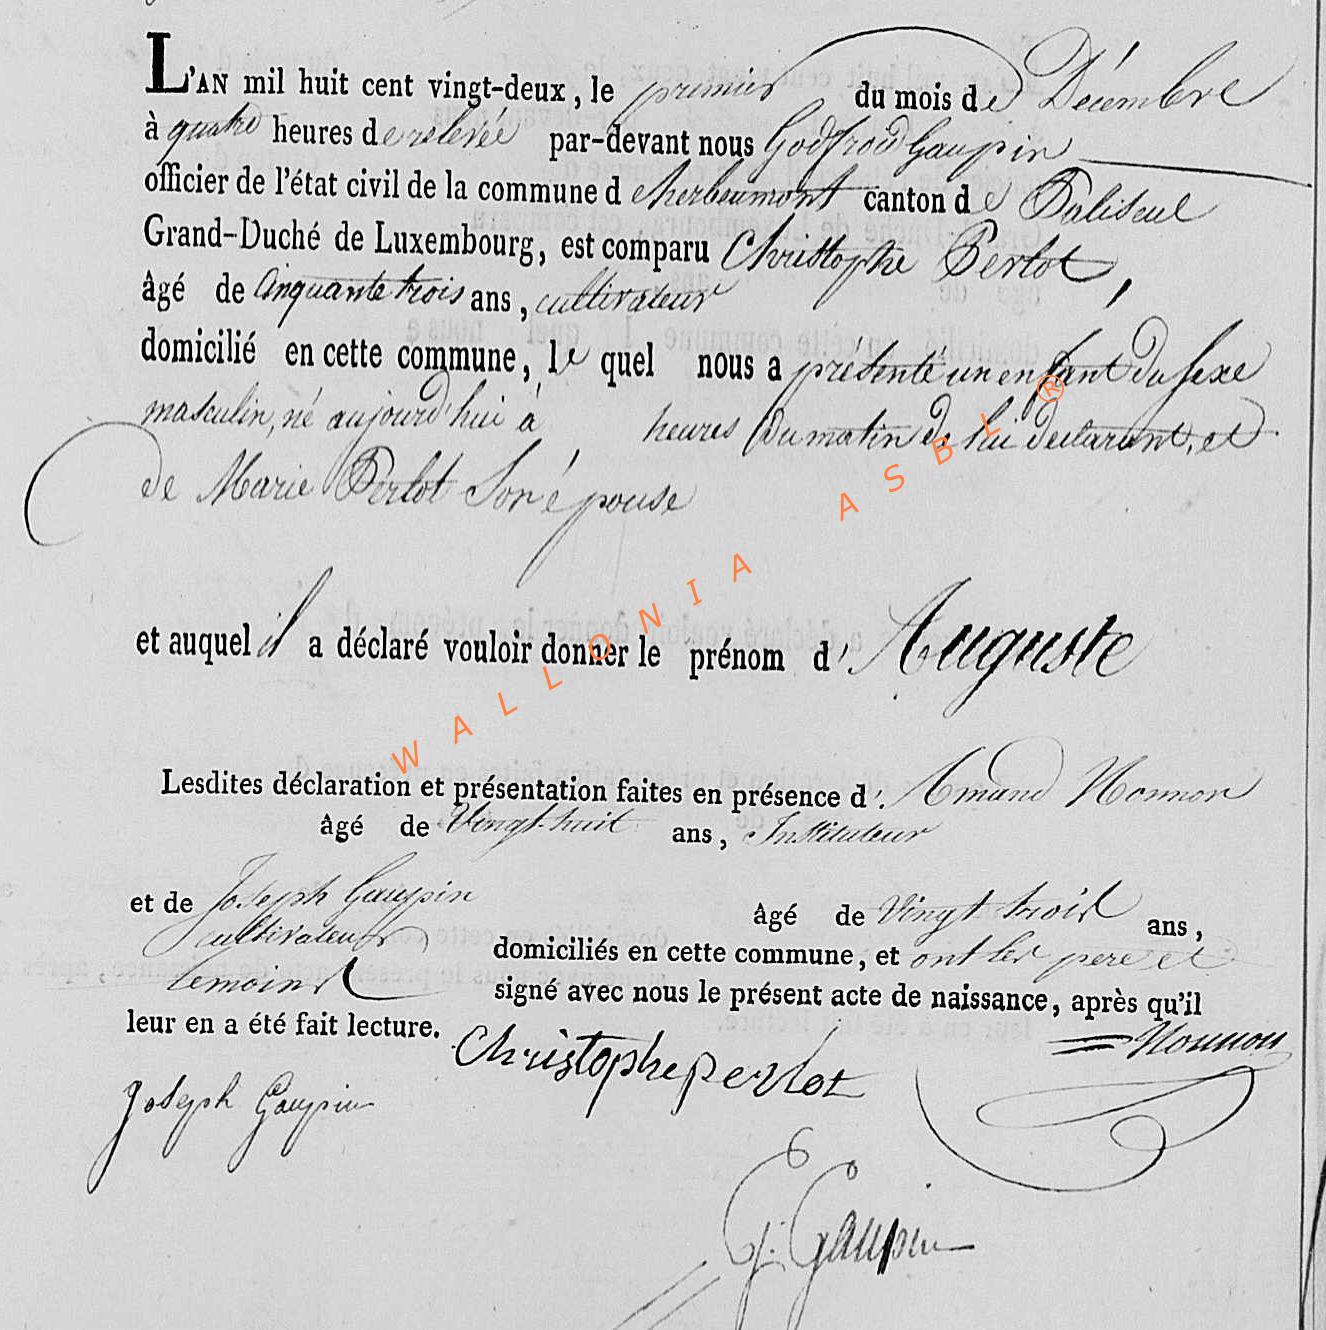 L'AN mil huit cent vingt-deux, le premier du mois de Décembre
à quatre heures de relevée par-devant nous Godfroid Gaupin
officier de l'état civil de la commune d'herbeumont canton de Paliseul
Grand-Duché de Luxembourg, est comparu Christophe Perlot,
âgé de Cinquante trois ans, cultivateur
domicilié en cette commune, le quel nous a présenté un enfant du sexe
masculin, né aujourd'hui à heures du matin de lui déclarant, et
de Marie Perlot son épouse
et auquel il a déclaré vouloir donner le prénom d'Auguste
Lesdites déclaration et présentation faites en présence d'Amand Nonnon
âgé de Vingt-huit ans, Instituteur
et de Joseph Gaupin âgé de Vingt trois ans,
cultivateur domiciliés en cette commune, et ont les pere et
temoins signé avec nous le présent acte de naissance, après qu'il
leur en a été fait lecture. Christophe perlot Nonnon
Joseph Gaupin
G. Gaupin
WALLONIA ASBL ®